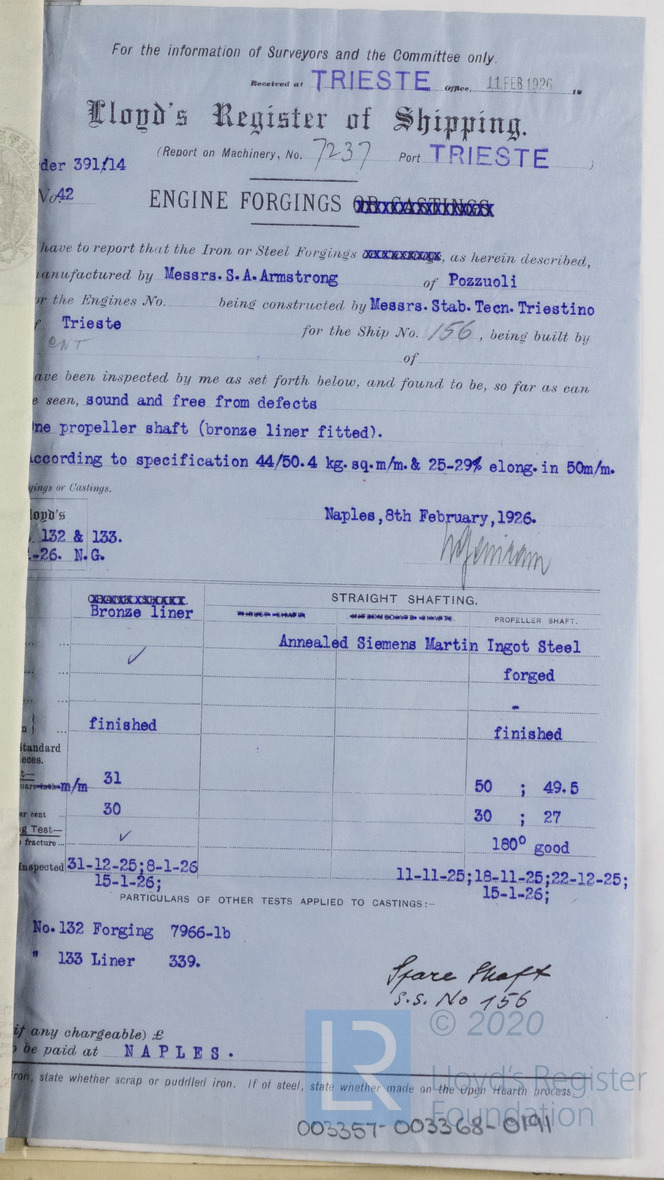 For the information of Surveyors and the Committee only.
Received at TRIESTE Office, 11 FEB 1926 19
Lloyd's Register of Shipping.
(Report on Machinery, No. 7237 Port TRIESTE )
der 391/14
No. 42
ENGINE FORGINGS OR CASTINGS
have to report that the Iron or Steel Forgings xxxxxxxxxx, as herein described,
anufactured by Messrs. S.A. Armstrong of Pozzuoli
or the Engines No. being constructed by Messrs. Stab. Tecn. Triestino
f Trieste for the Ship No. 156, being built by
CNT
of
ave been inspected by me as set forth below, and found to be, so far as can
e seen, sound and free from defects
ne propeller shaft (bronze liner fitted).
According to specification 44/50.4 kg. sq.m/m. & 25-29% elong. in 50m/m.
gings or Castings.
loyd's
Naples, 8th February, 1926.
. 132 & 133.
-26. N.G.
STRAIGHT SHAFTING.
Bronze liner
PROPELLER SHAFT.
Annealed Siemens Martin Ingot Steel
✓
forged
-
finished
finished
Standard
eces.
t—
m/m 31 50 ; 49.5
er cent 30 30 ; 27
g Test—
fracture ... ✓ 180° good
Inspected 31-12-25; 8-1-26 11-11-25; 18-11-25; 22-12-25;
15-1-26; 15-1-26;
PARTICULARS OF OTHER TESTS APPLIED TO CASTINGS:—
No. 132 Forging 7966-1b
" 133 Liner 339.
Spare Shaft
S.S. No 156
if any chargeable) £
o be paid at NAPLES.
iron, state whether scrap or puddled iron. If of steel, state whether made on the Open Hearth process.
LR
© 2020
Lloyd's Register
Foundation
003357-003368-0191